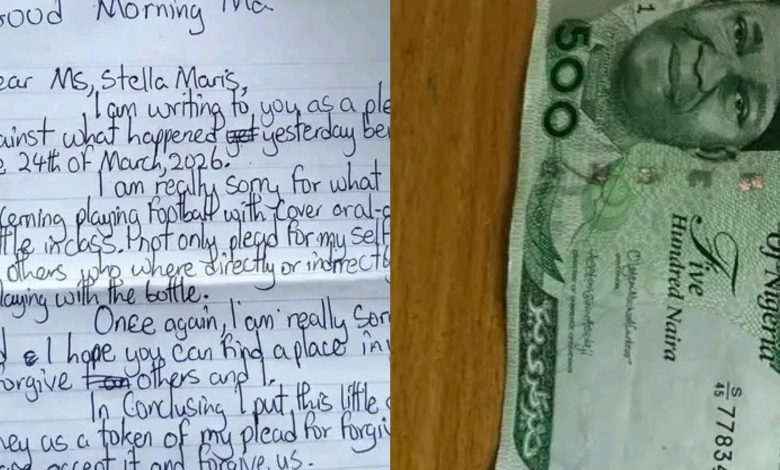 Good Morning Ma
ear Ms, Stella Maris,
I am writing to you as a ple
ainst what happened yesterday be
e 24th of March, 2026.
I am really sorry for what
cerning playing football with cover oral-
ttle in class. I not only plead for my self
others who where directly or indirectly
laying with the bottle.
Once again, I am really sorr
I hope you can find a place in y
forgive others and I.
In Conclusing I put this little
ney as a token of my plead for forgiv
accept it and forgive us.
500
of Nigeria
Five
Hundred Naira
S/45
77834